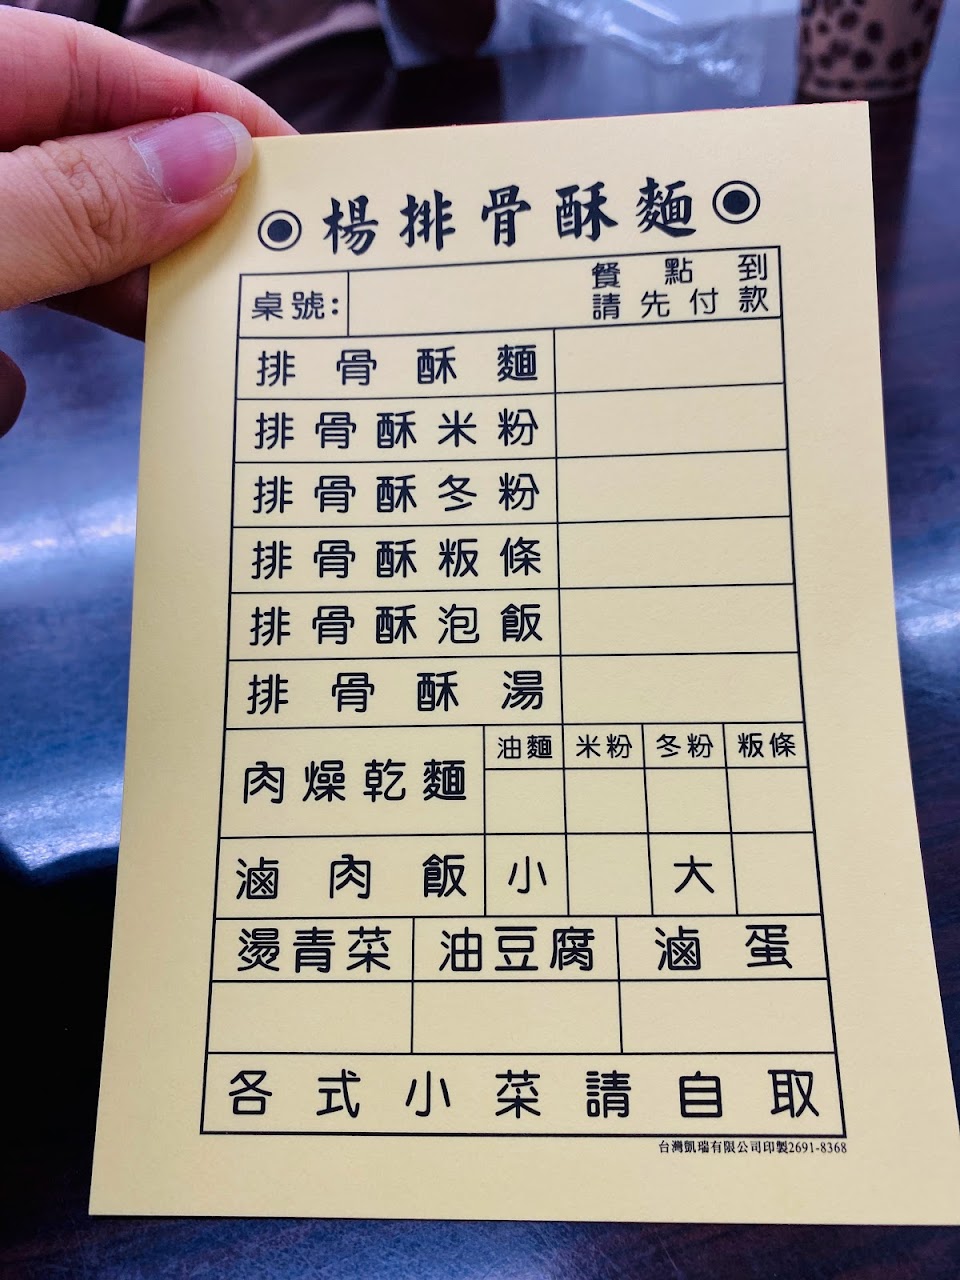 ◉楊排骨酥麵◉
桌號:
餐點到
請先付款
排骨酥麵
排骨酥米粉
排骨酥冬粉
排骨酥粄條
排骨酥泡飯
排骨酥湯
肉燥乾麵 油麵 米粉 冬粉 粄條
滷肉飯 小 大
燙青菜 油豆腐 滷蛋
各式小菜請自取
台灣凱瑞有限公司印製2691-8368